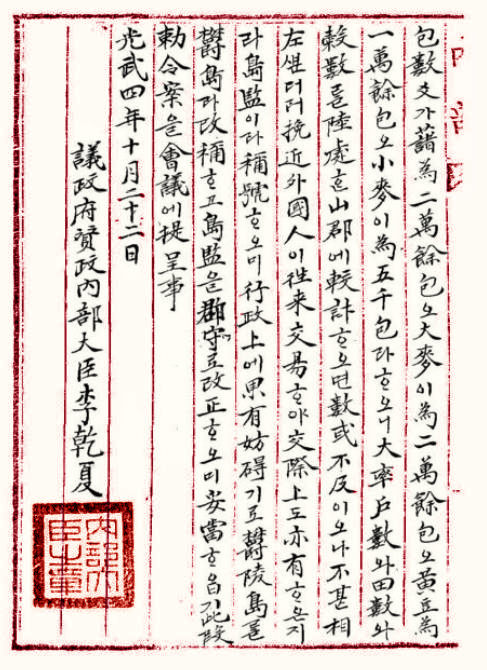 包數爻가藉爲二萬餘包오大麥이爲二萬餘包오黃豆爲
一萬餘包오小麥이爲五千包라ᄒᆞ오니大率戶數와田數와
穀數를陸處ᄒᆞᆫ山郡에較計ᄒᆞ오면數或不及이오나不甚相
左ᄲᅮᆫ더러挽近外國人이往來交易ᄒᆞ야交際上도亦有ᄒᆞ온지
라島監이라稱號ᄒᆞ오미行政上에果有妨碍기로鬱陵島를
鬱島라改稱ᄒᆞ고島監을郡守로改正ᄒᆞ오미妥當ᄒᆞ옵기此段
勅令案을會議에提呈事
光武四年十月二十二日
議政府贊政內部大臣李乾夏
內部大臣之章